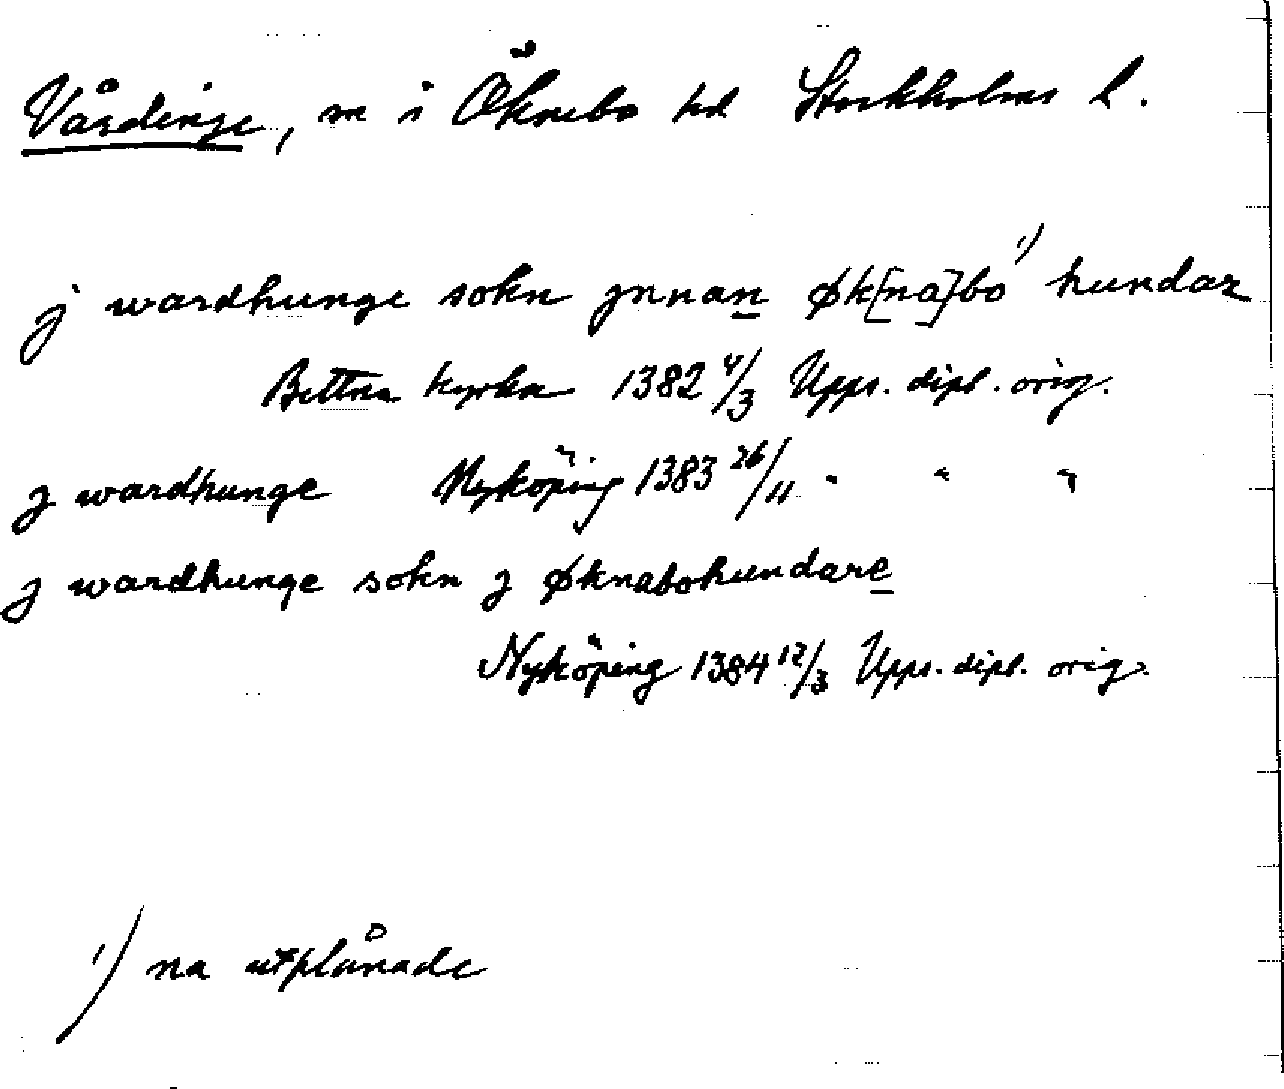 Vårdinge, sn i Öknebo hd Stockholms l.
j wardhunge sokn jnnan øk[na]bo¹) hundar
Bettna kyrka 1382 4/3 Upps. dipl. orig.
j wardhunge Nyköping 1383 26/11 " " "
j wardhunge sokn j øknabohundare
Nyköping 1384 12/3 Upps. dipl. orig.
¹) na utplånade